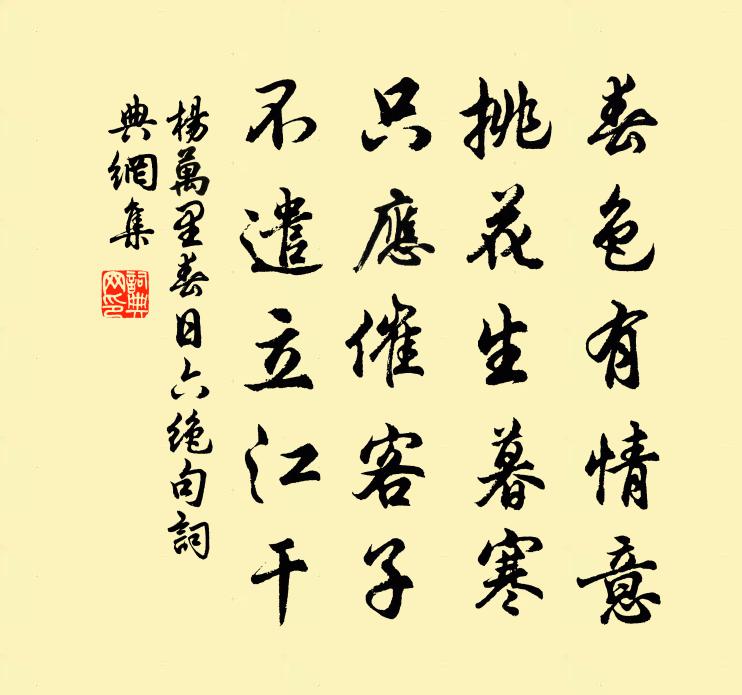 春色有情意
桃花生暮寒
只應催客子
不遣立江干
楊萬里春日六絕句詞
典網集
詞典網印